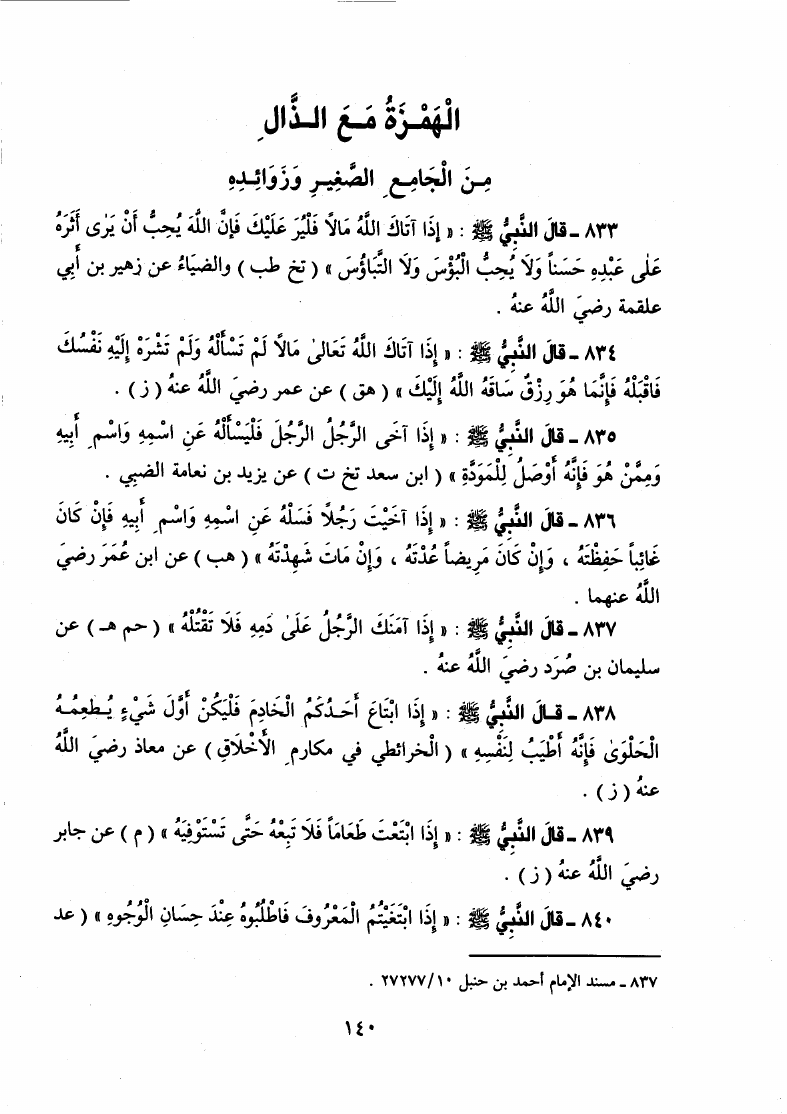 الْهَمْزَةُ مَـعَ الـذَّالِ
مِـنَ الْجَامِـعِ الصَّغِيـرِ وَزَوَائِـدِهِ
٨٣٣ ـ قالَ النَّبِيُّ ﷺ : « إِذَا آتَاكَ اللَّهُ مَالاً فَلْيُرَ عَلَيْكَ فَإِنَّ اللَّهَ يُحِبُّ أَنْ يَرٰى أَثَرَهُ
عَلٰى عَبْدِهِ حَسَناً وَلَا يُحِبُّ الْبُؤْسَ وَلَا التَّبَاؤُسَ » ( تخ طب ) والضيَاءُ عن زهير بن أَبي
علقمة رضيَ اللَّهُ عنهُ .
٨٣٤ ـ قالَ النَّبِيُّ ﷺ : « إِذَا آتَاكَ اللَّهُ تَعَالٰى مَالاً لَمْ تَسْأَلْهُ وَلَمْ تَشْرَهْ إِلَيْهِ نَفْسُكَ
فَاقْبَلْهُ فَإِنَّمَا هُوَ رِزْقٌ سَاقَهُ اللَّهُ إِلَيْكَ » ( هق ) عن عمر رضيَ اللَّهُ عنهُ ( ز ) .
٨٣٥ ـ قالَ النَّبِيُّ ﷺ : « إِذَا آخَى الرَّجُلُ الرَّجُلَ فَلْيَسْأَلْهُ عَنِ اسْمِهِ وَاسْمِ أَبِيهِ
وَمِمَّنْ هُوَ فَإِنَّهُ أَوْصَلُ لِلْمَوَدَّةِ » ( ابن سعد تخ ت ) عن يزيد بن نعامة الضبي .
٨٣٦ ـ قالَ النَّبِيُّ ﷺ : « إِذَا آخَيْتَ رَجُلاً فَسَلْهُ عَنِ اسْمِهِ وَاسْمِ أَبِيهِ فَإِنْ كَانَ
غَائِباً حَفِظْتَهُ ، وَإِنْ كَانَ مَرِيضاً عُدْتَهُ ، وَإِنْ مَاتَ شَهِدْتَهُ » ( هب ) عن ابن عُمَرَ رضيَ
اللَّهُ عنهما .
٨٣٧ ـ قالَ النَّبِيُّ ﷺ : « إِذَا آمَنَكَ الرَّجُلُ عَلٰى دَمِهِ فَلَا تَقْتُلْهُ » ( حم هـ ) عن
سليمان بن صُرَد رضيَ اللَّهُ عنهُ .
٨٣٨ ـ قـالَ النَّبِيُّ ﷺ : « إِذَا ابْتَاعَ أَحَـدُكُمُ الْخَادِمَ فَلْيَكُنْ أَوَّلَ شَيْءٍ يُـطْعِمُـهُ
الْحَلْوَىٰ فَإِنَّهُ أَطْيَبُ لِنَفْسِهِ » ( الْخرائطي في مكارمِ الأَخْلَاقِ ) عن معاذ رضيَ اللَّهُ
عنهُ ( ز ) .
٨٣٩ ـ قالَ النَّبِيُّ ﷺ : « إِذَا ابْتَعْتَ طَعَامَاً فَلَا تَبِعْهُ حَتَّى تَسْتَوْفِيَهُ » ( م ) عن جابر
رضيَ اللَّهُ عنهُ ( ز ) .
٨٤٠ ـ قالَ النَّبِيُّ ﷺ : « إِذَا ابْتَغَيْتُمُ الْمَعْرُوفَ فَاطْلُبُوهُ عِنْدَ حِسَانِ الْوُجُوهِ » ( عد
٨٣٧ ـ مسند الإمام أحمد بن حنبل ٢٧٢٧٧/١٠ .
١٤٠